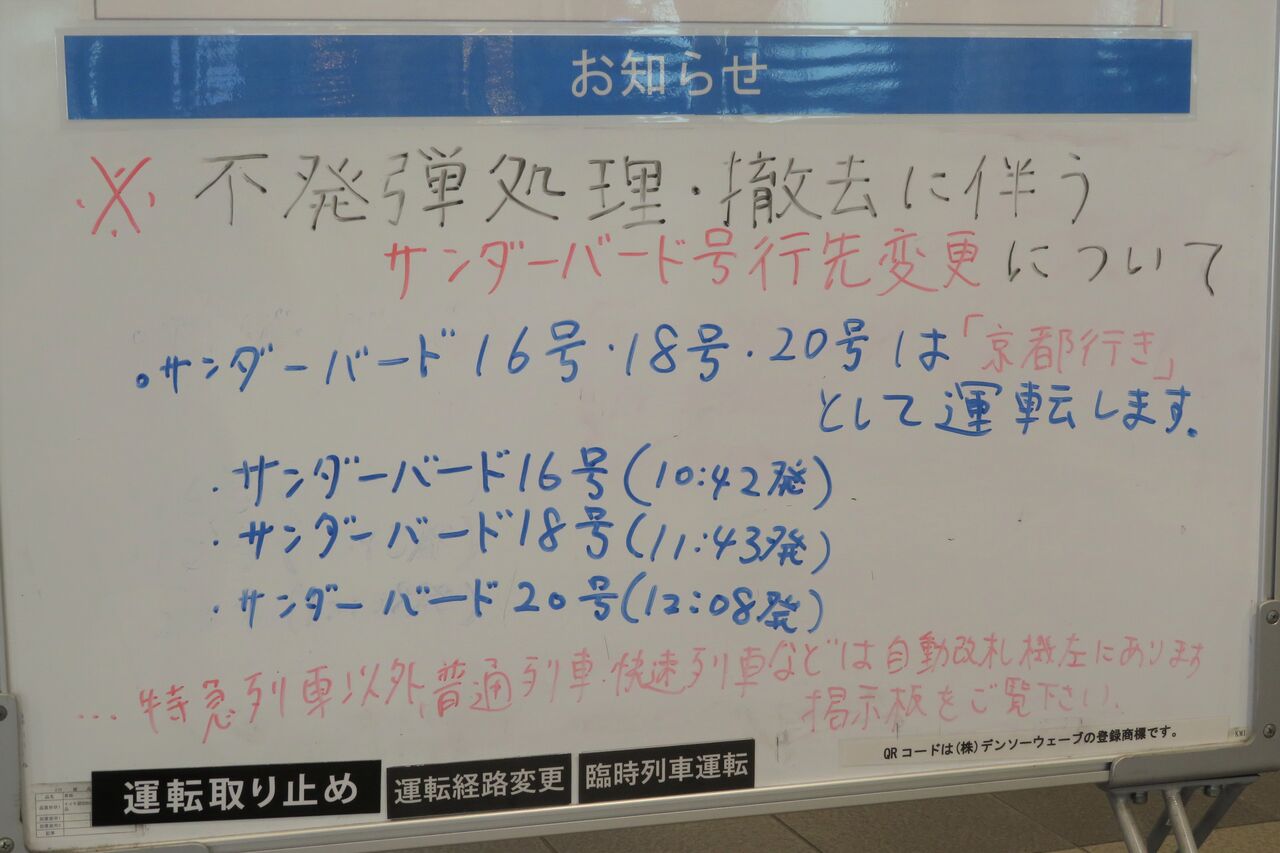 お知らせ
※ 不発弾処理・撤去に伴う
サンダーバード号行先変更について
。サンダーバード16号・18号・20号は「京都行き」
として運転します。
・サンダーバード16号(10:42発)
・サンダーバード18号(11:43発)
・サンダーバード20号(12:08発)
...特急列車以外、普通列車・快速列車などは自動改札機左にあります
掲示板をご覧下さい.
QRコードは(株)デンソーウェーブの登録商標です。
運転取り止め
運転経路変更
臨時列車運転